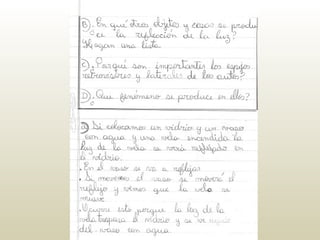 B). En qué otros objetos y cosas se produ
ce la reflexión de la luz?
Hagan una lista.
C). Porqué son importantes los espejos
retrovisores y laterales de los autos?
D). Que fenómeno se produce en ellos?
a) Si colocamos un vidrio y un vaso
con agua y una vela encendida la
luz de la vela se verá reflejado en
el vidrio.
. En el vaso se va a reflejar
. Si movemos el vaso se moverá el
reflejo y vimos que la vela se
mueve
. Ocurre esto porque la luz de la
vela traspasa el vidrio y se ve
del vaso con agua.